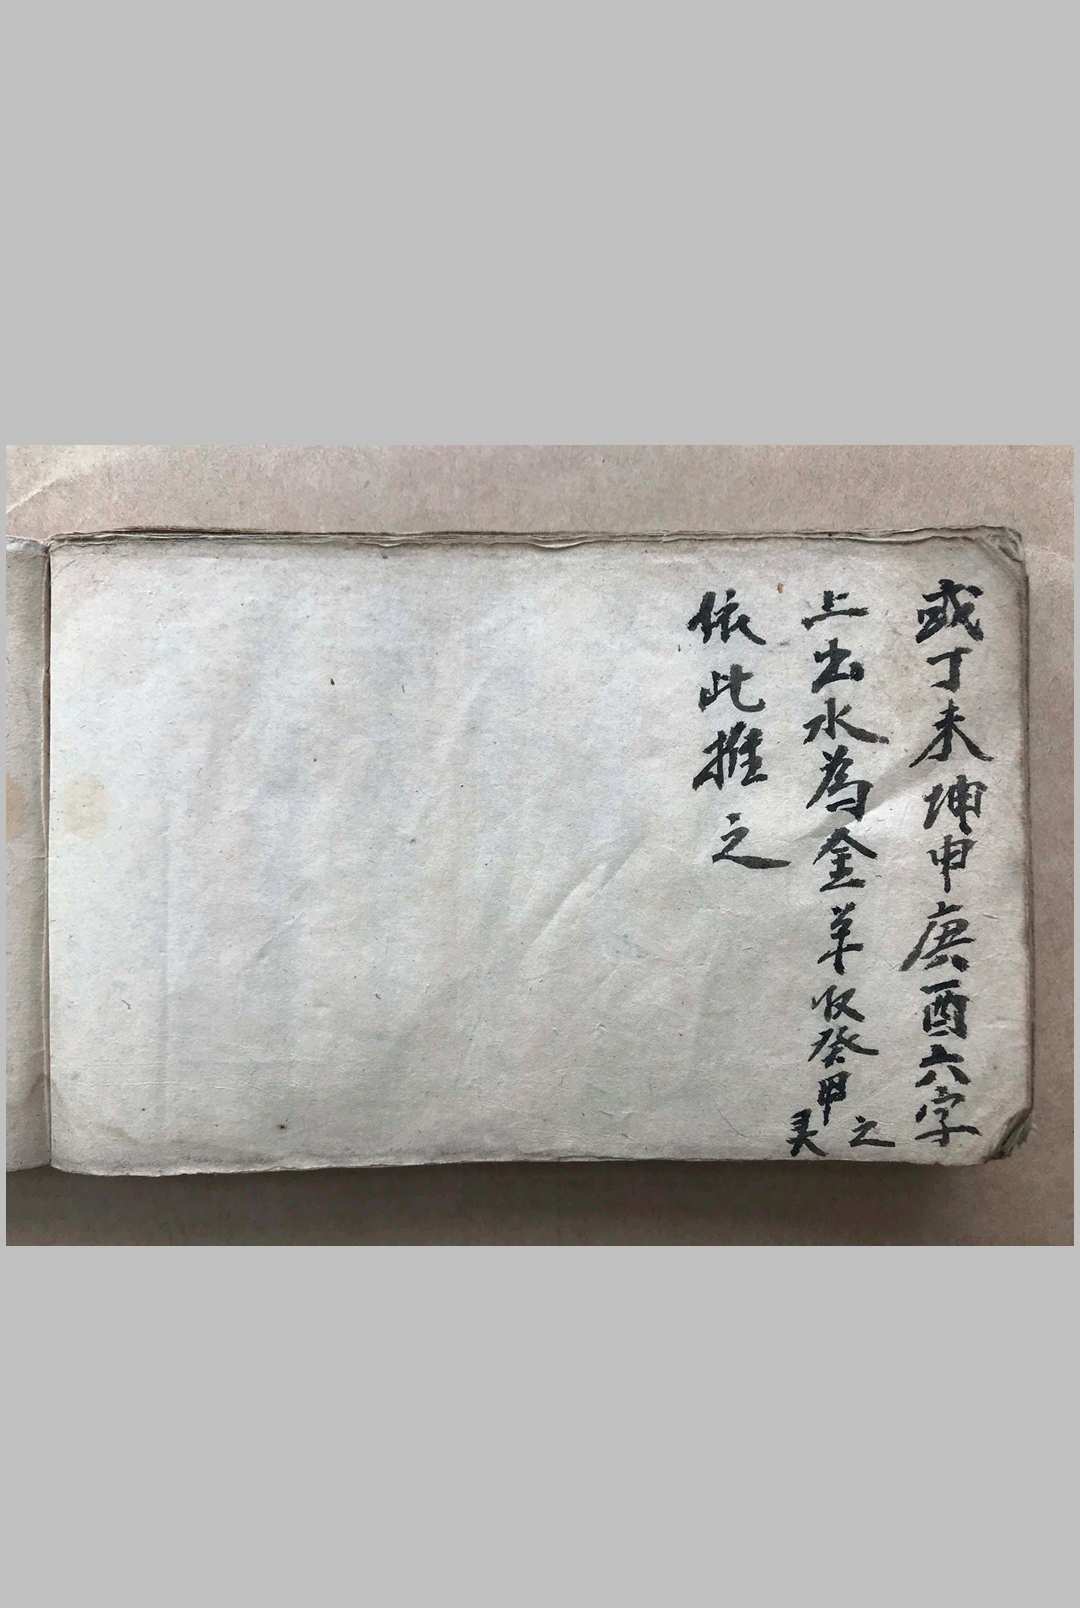 或丁未坤申庚酉六字
上出水為金羊收癸甲之灵
依此推之